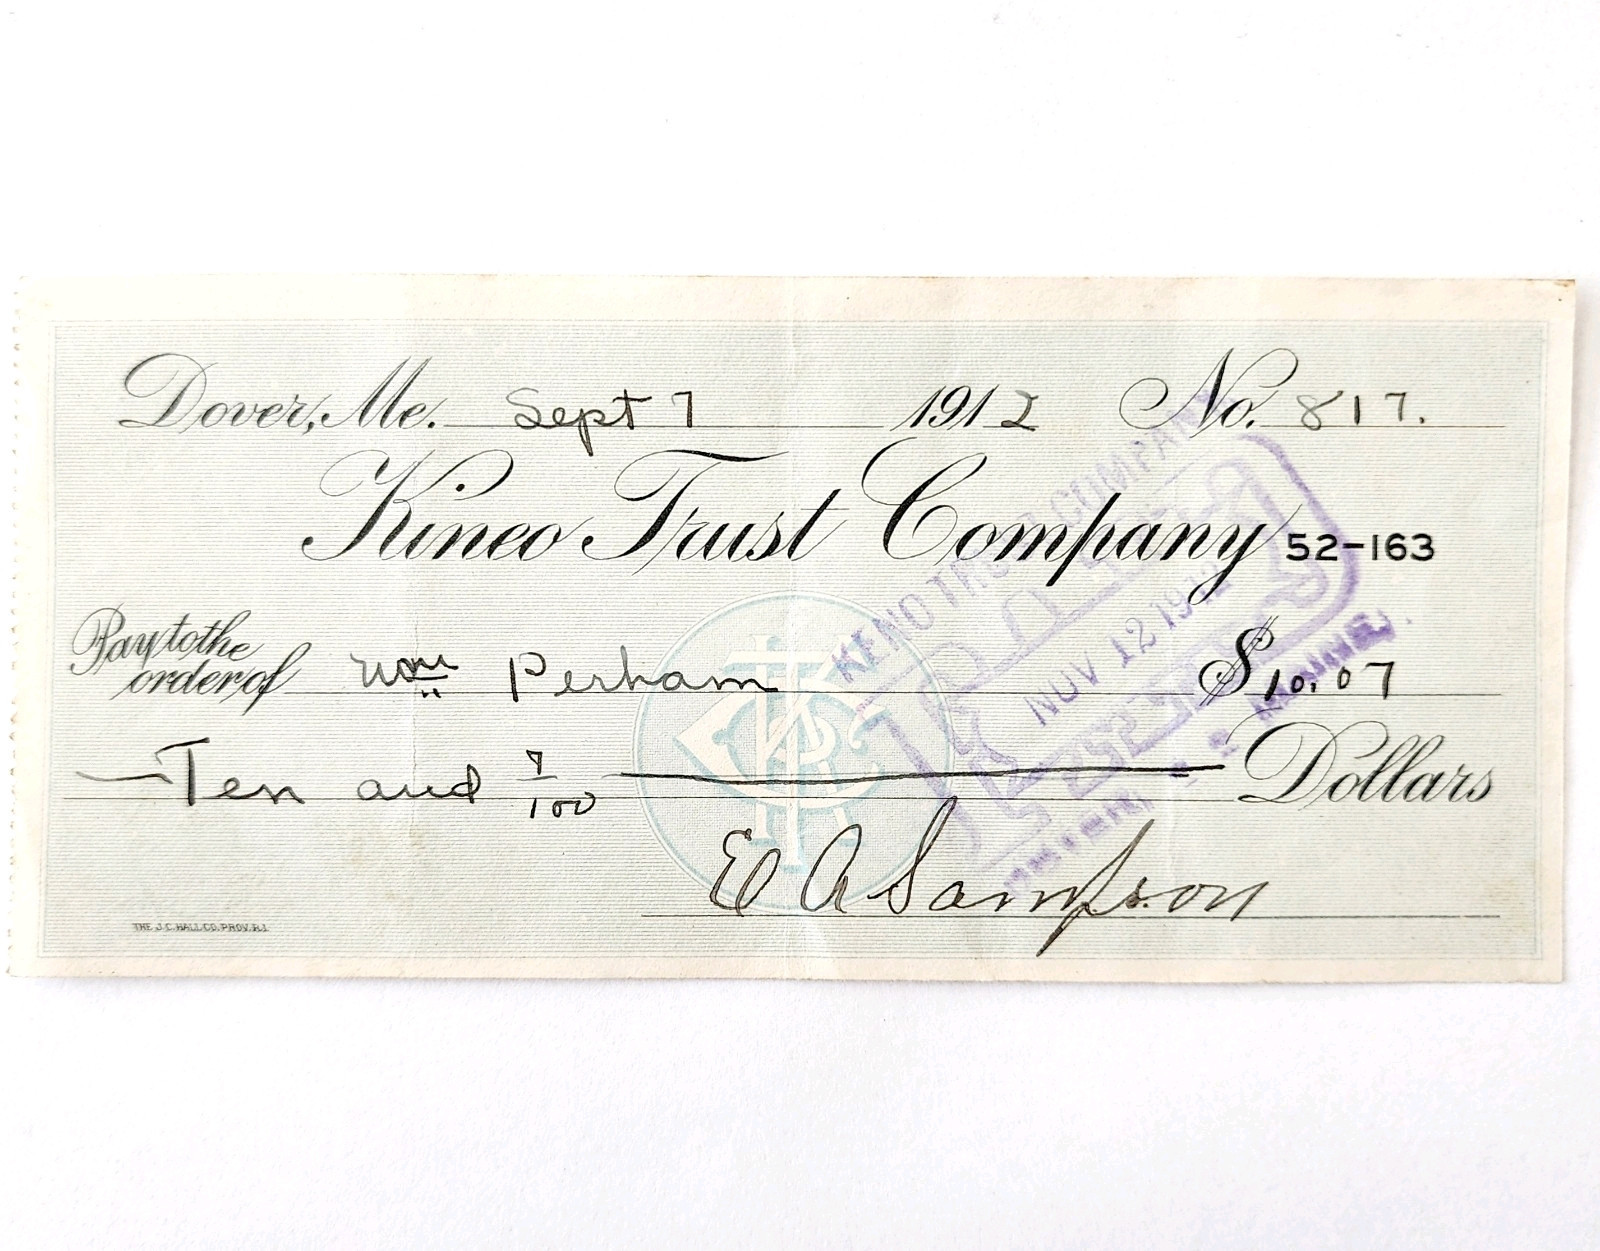 Dover, Me. Sept 7 1912 No. 817.
Kineo Trust Company 52-163
Pay to the order of Wm Perham $10.07
Ten and 7/100 Dollars
E A Sampson
THE J.C. HALL CO. PROV. R.I.
NOV 12 1912
PAID